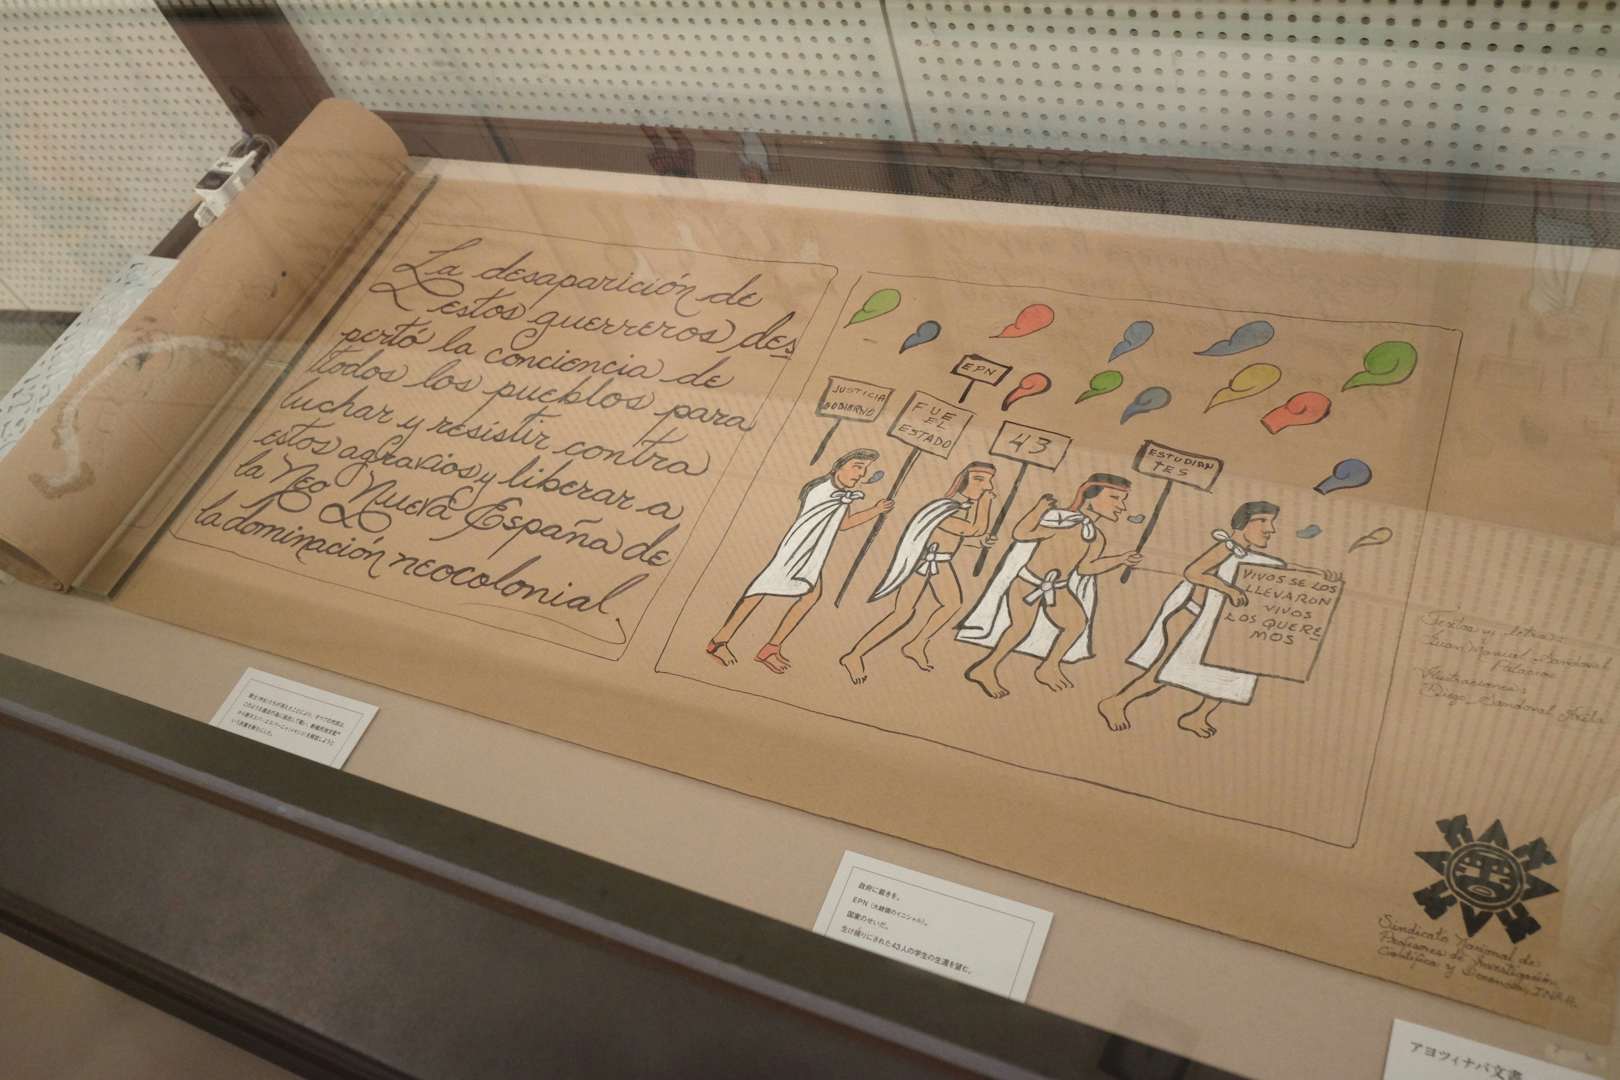 La desaparición de
estos guerreros des
pertó la conciencia de
ttodos los pueblos para
luchar y resistir contra
estos agravios y liberar a
la Neo Nueva España de
la dominación neocolonial
JUSTICIA
GOBIERNO
FUE
EL
ESTADO
EPN
43
ESTUDIAN
TES
VIVOS SE LOS
LLEVARON
VIVOS
LOS QUERE-
MOS
Textos y letras:
Juan Manuel Sandoval
Palacios
Ilustraciones:
Diego Sandoval
Sindicato Nacional de
Profesores de Investigación
Científica y Docencia, INAH.
政府に裁きを。
EPN（大統領のイニシャル）。
国家のせいだ。
生け捕りにされた43人の学生の生還を望む。
アヨツィナパ文書